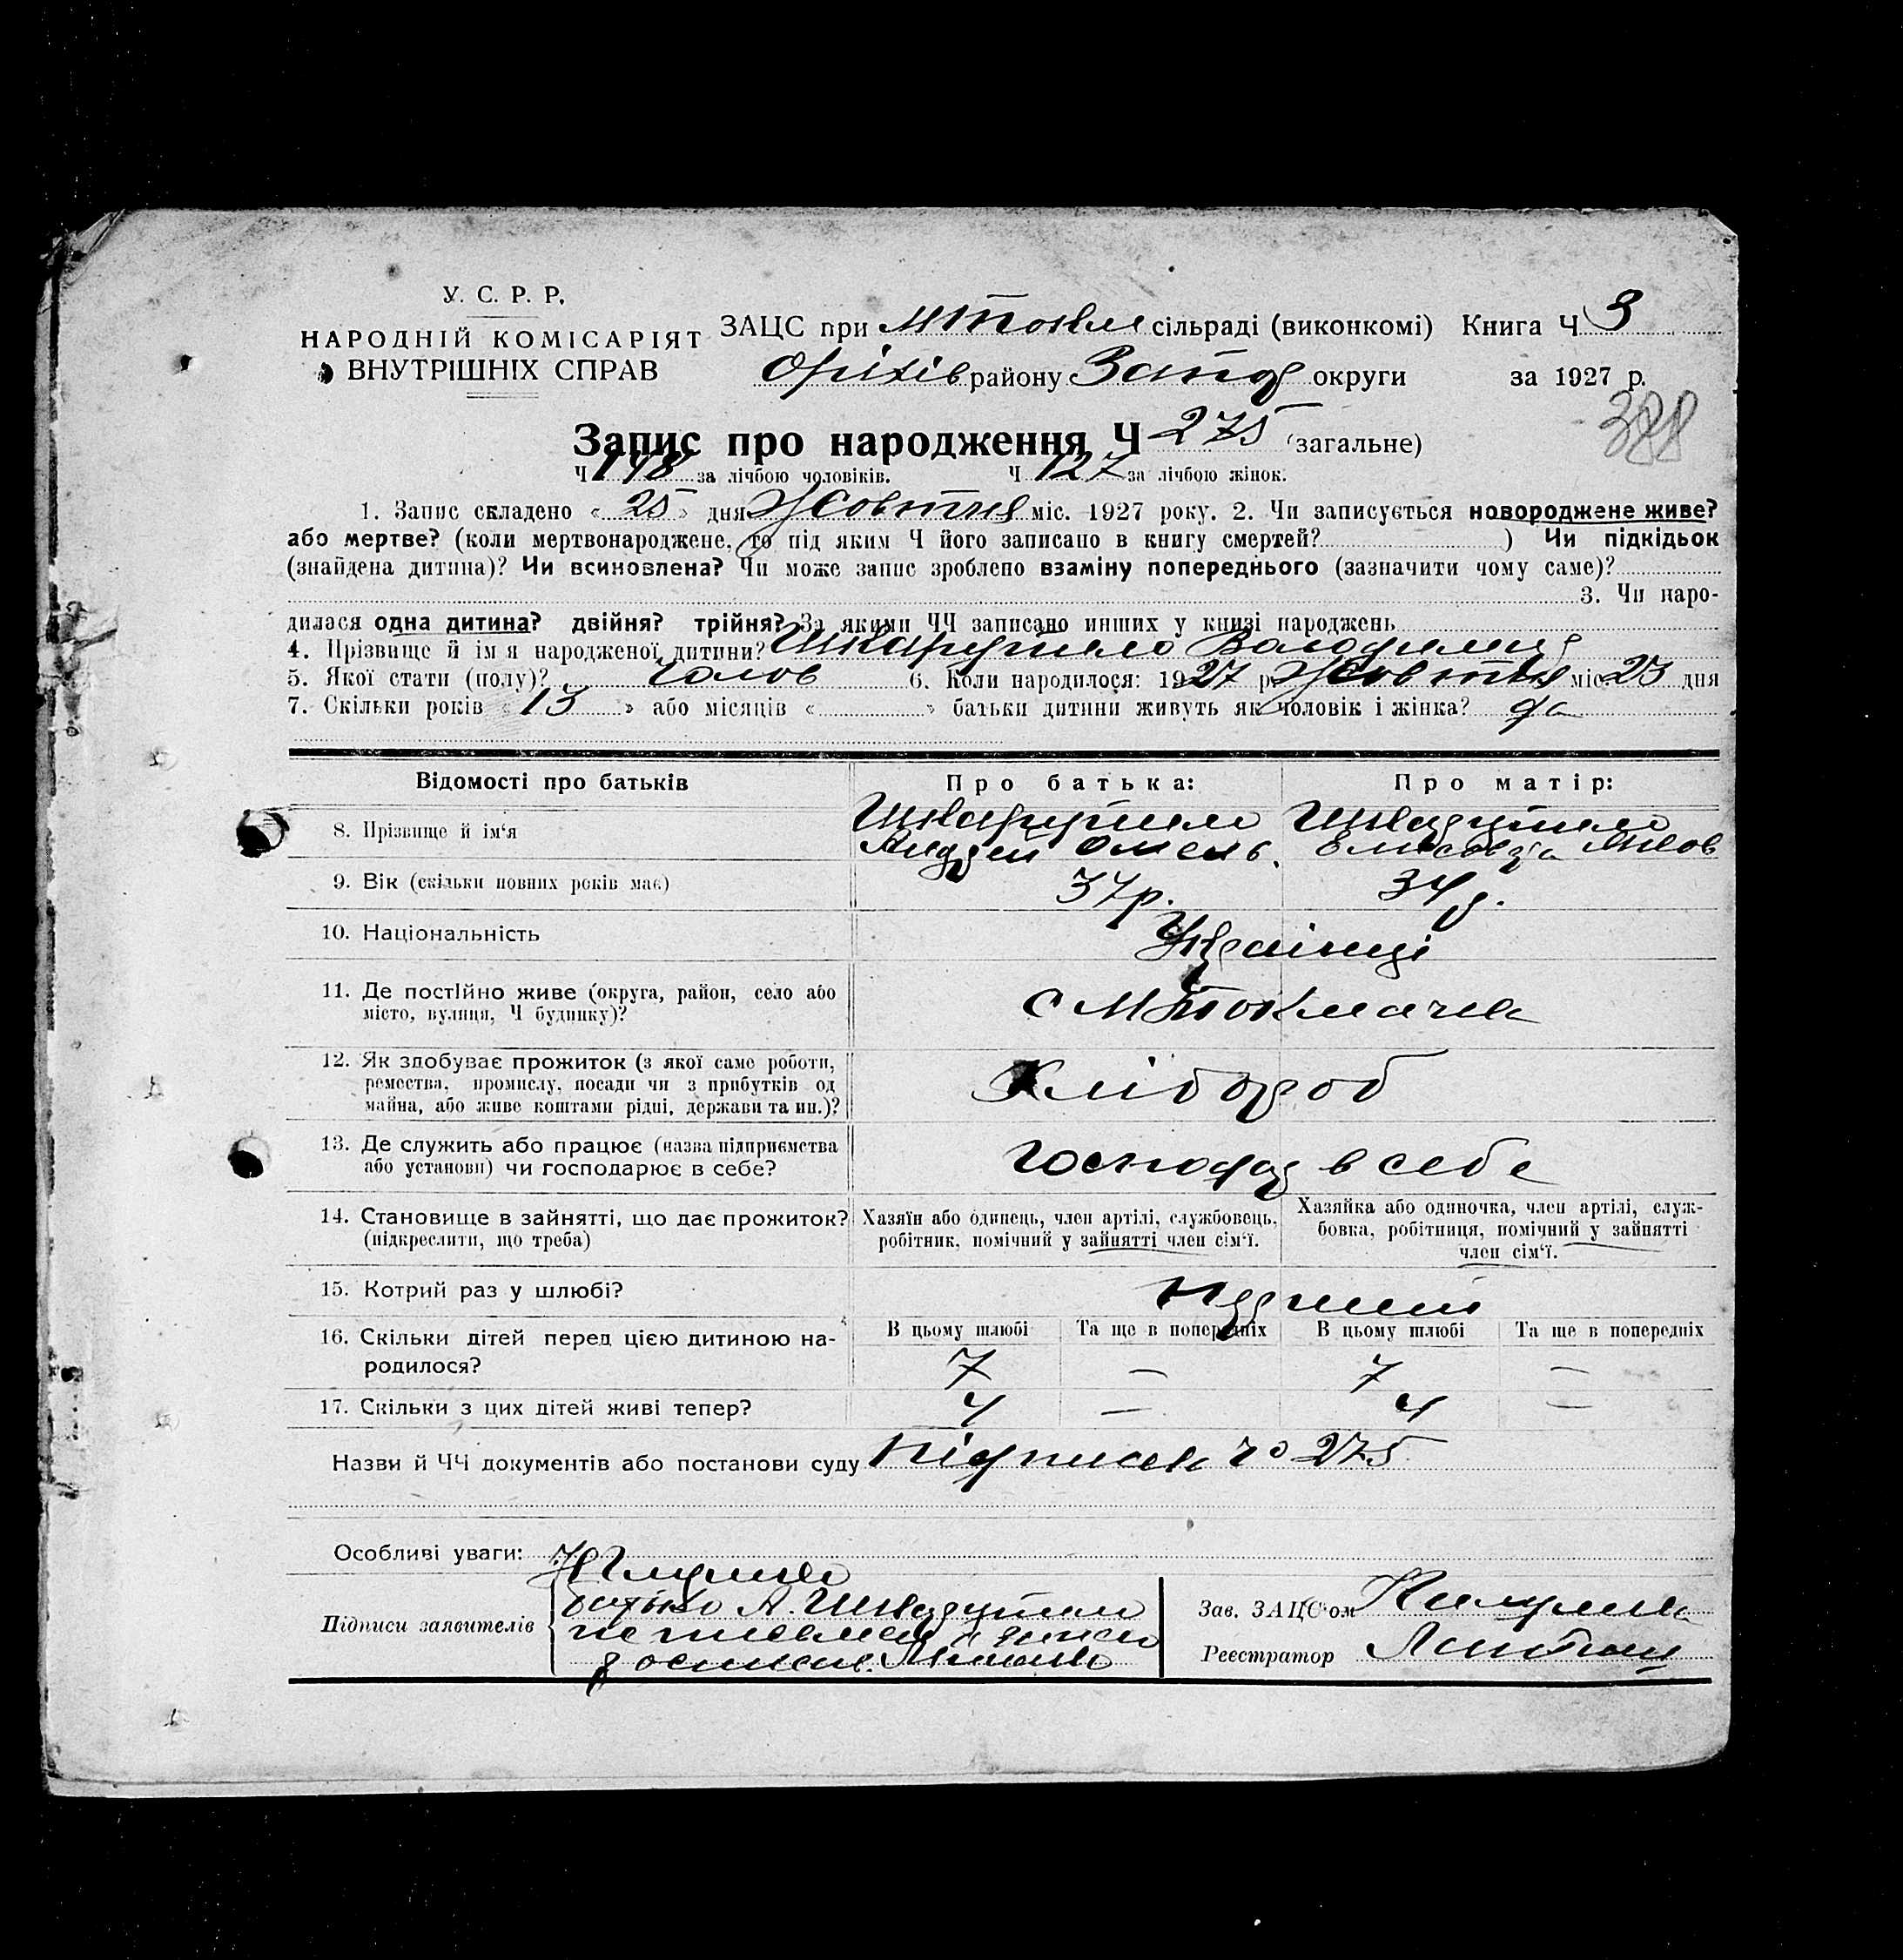 У. С. Р. Р.
НАРОДНІЙ КОМІСАРІЯТ
ВНУТРІШНІХ СПРАВ
ЗАЦС при МТокм сільраді (виконкомі) Книга Ч 3
Оріхів району Запор округи за 1927 р.
388
Запис про народження Ч 275 (загальне)
Ч 148 за лічбою чоловіків. Ч 127 за лічбою жінок.
1. Запис складено « 25 » дня Жовтня міс. 1927 року. 2. Чи записується новороджене живе?
або мертве? (коли мертвонароджене, то під яким Ч його записано в книгу смертей? ) Чи підкідьок
(знайдена дитина)? Чи всиновлена? Чи може запис зроблено взаміну попереднього (зазначити чому саме)?
3. Чи наро-
дилася одна дитина? двійня? трійня? За якими ЧЧ записано инших у книзі народжень
4. Прізвище й ім'я народженої дитини? Шкарупило Володимир
5. Якої стати (полу)? Чолов 6. Коли народилося: 1927 р Жовтня міс 23 дня
7. Скільки років « 13 » або місяців « » батьки дитини живуть як чоловік і жінка? да
Відомості про батьків Про батька: Про матір:
8. Прізвище й ім'я Шкарупило Шкарупило
Андрей Омельк. Елисавета
9. Вік (скільки повних років має) 37р. 34р.
10. Національність Українці
11. Де постійно живе (округа, район, село або
місто, вулиця, Ч будинку)? с МТокмачка
12. Як здобуває прожиток (з якої саме роботи,
ремества, промислу, посади чи з прибутків од
майна, або живе коштами рідні, держави та ин.)? Хлібороб
13. Де служить або працює (назва підприємства
або установи) чи господарює в себе? господар в себе
14. Становище в зайнятті, що дає прожиток?
(підкреслити, що треба)
Хазяїн або одинець, член артілі, службовець,
робітник, помічний у зайнятті член сім'ї.
Хазяйка або одиночка, член артілі, служ-
бовка, робітниця, помічний у зайнятті
член сім'ї.
15. Котрий раз у шлюбі? Перший
16. Скільки дітей перед цією дитиною на-
родилося?
В цьому шлюбі Та ще в попередніх В цьому шлюбі Та ще в попередніх
7 — 7 —
17. Скільки з цих дітей живі тепер? 4 — 4 —
Назви й ЧЧ документів або постанови суду Підписка Чо 275
Особливі уваги:
Підписи заявителів
батько А. Шкарупило
Зав. ЗАЦС'ом
Реєстратор